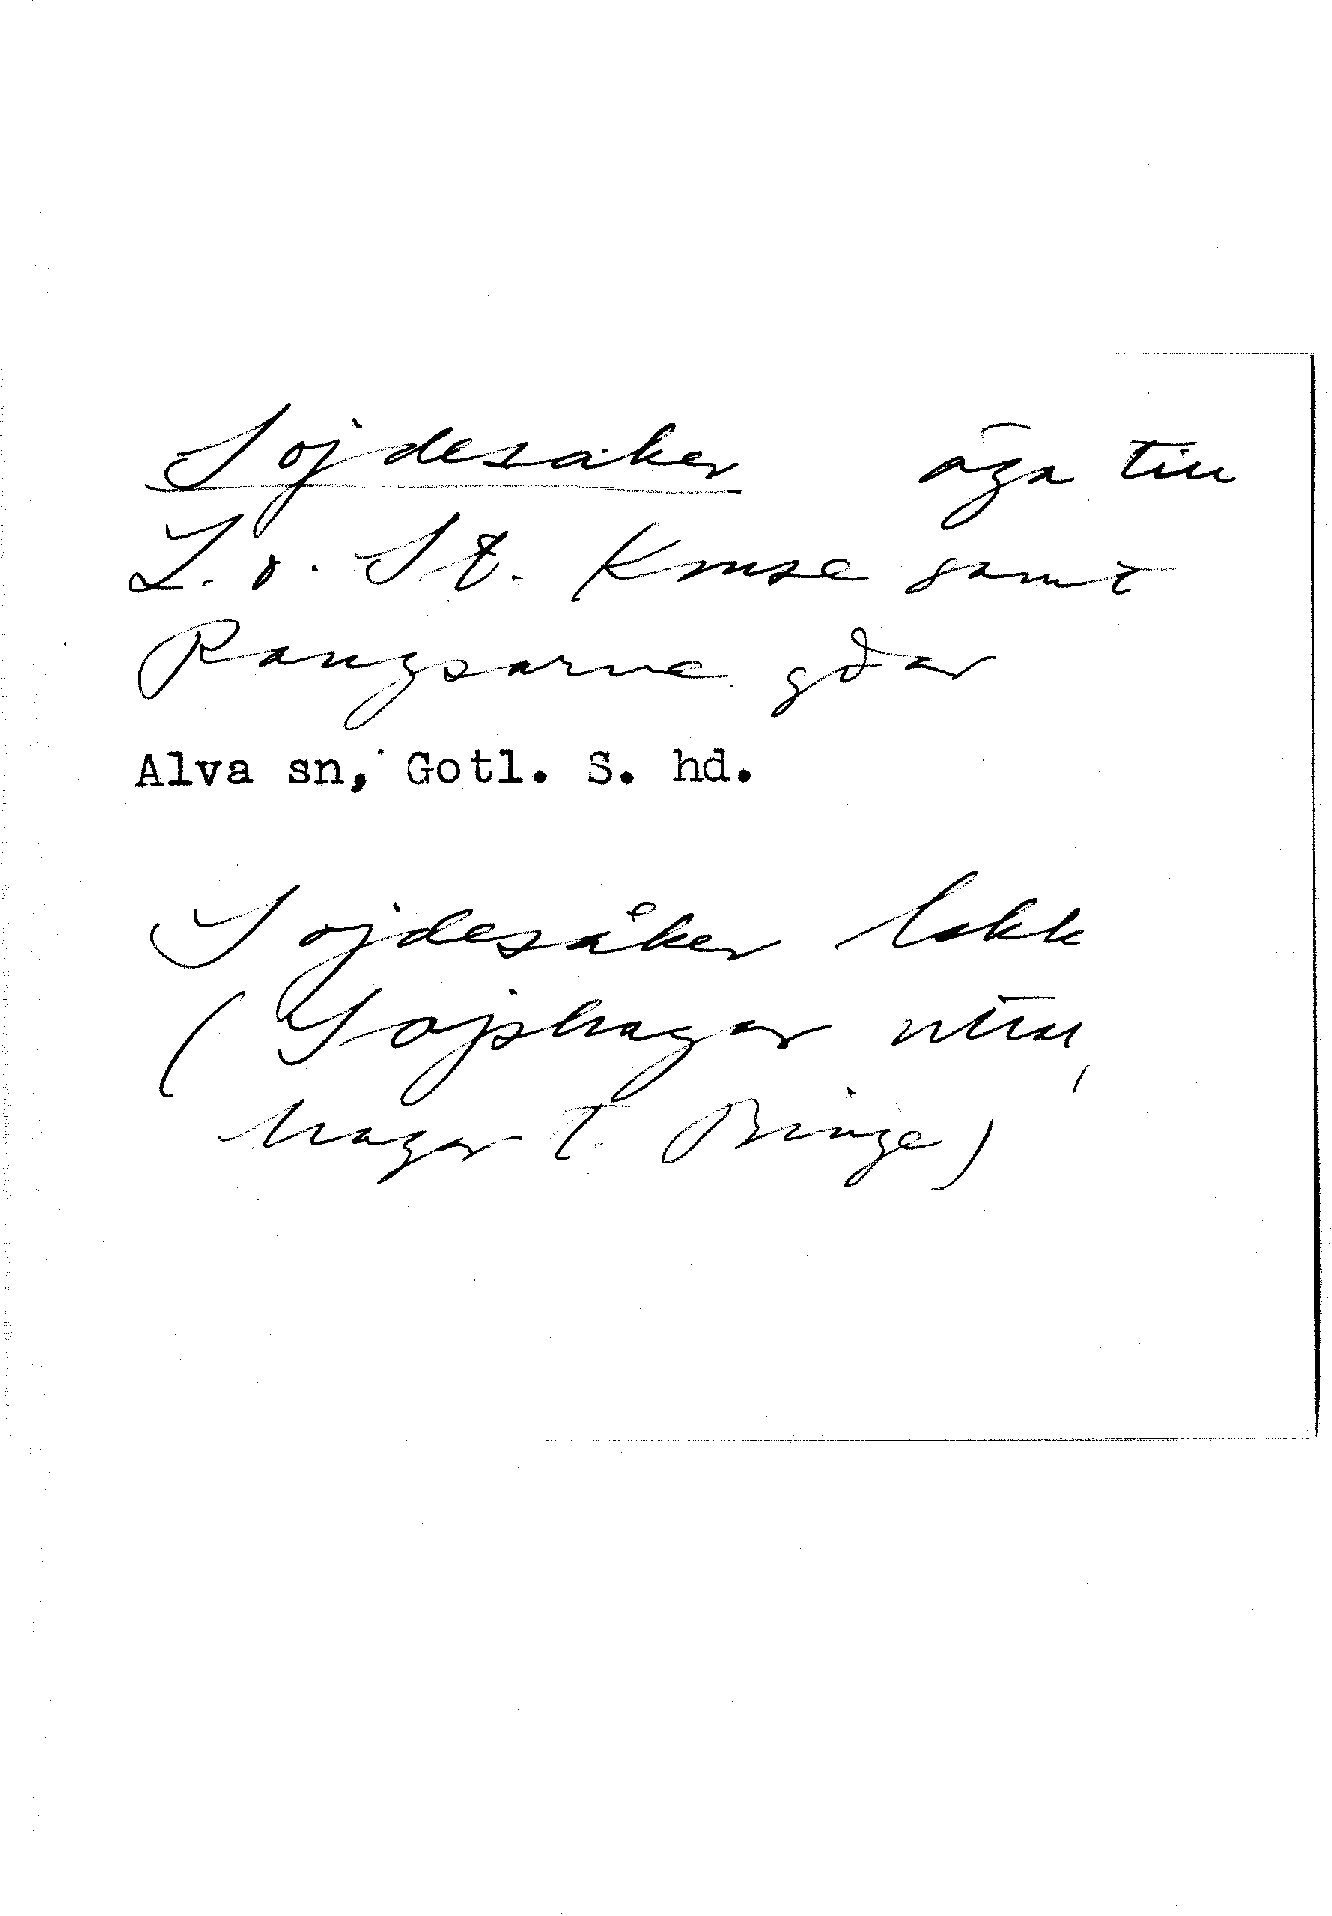 Sojdesåker äga till
L. o. St. Kruse samt
Rangsarve gdar
Alva sn, Gotl. S. hd.
Sojdesåker lokk
(Sojshagar
hagar t. Binge)